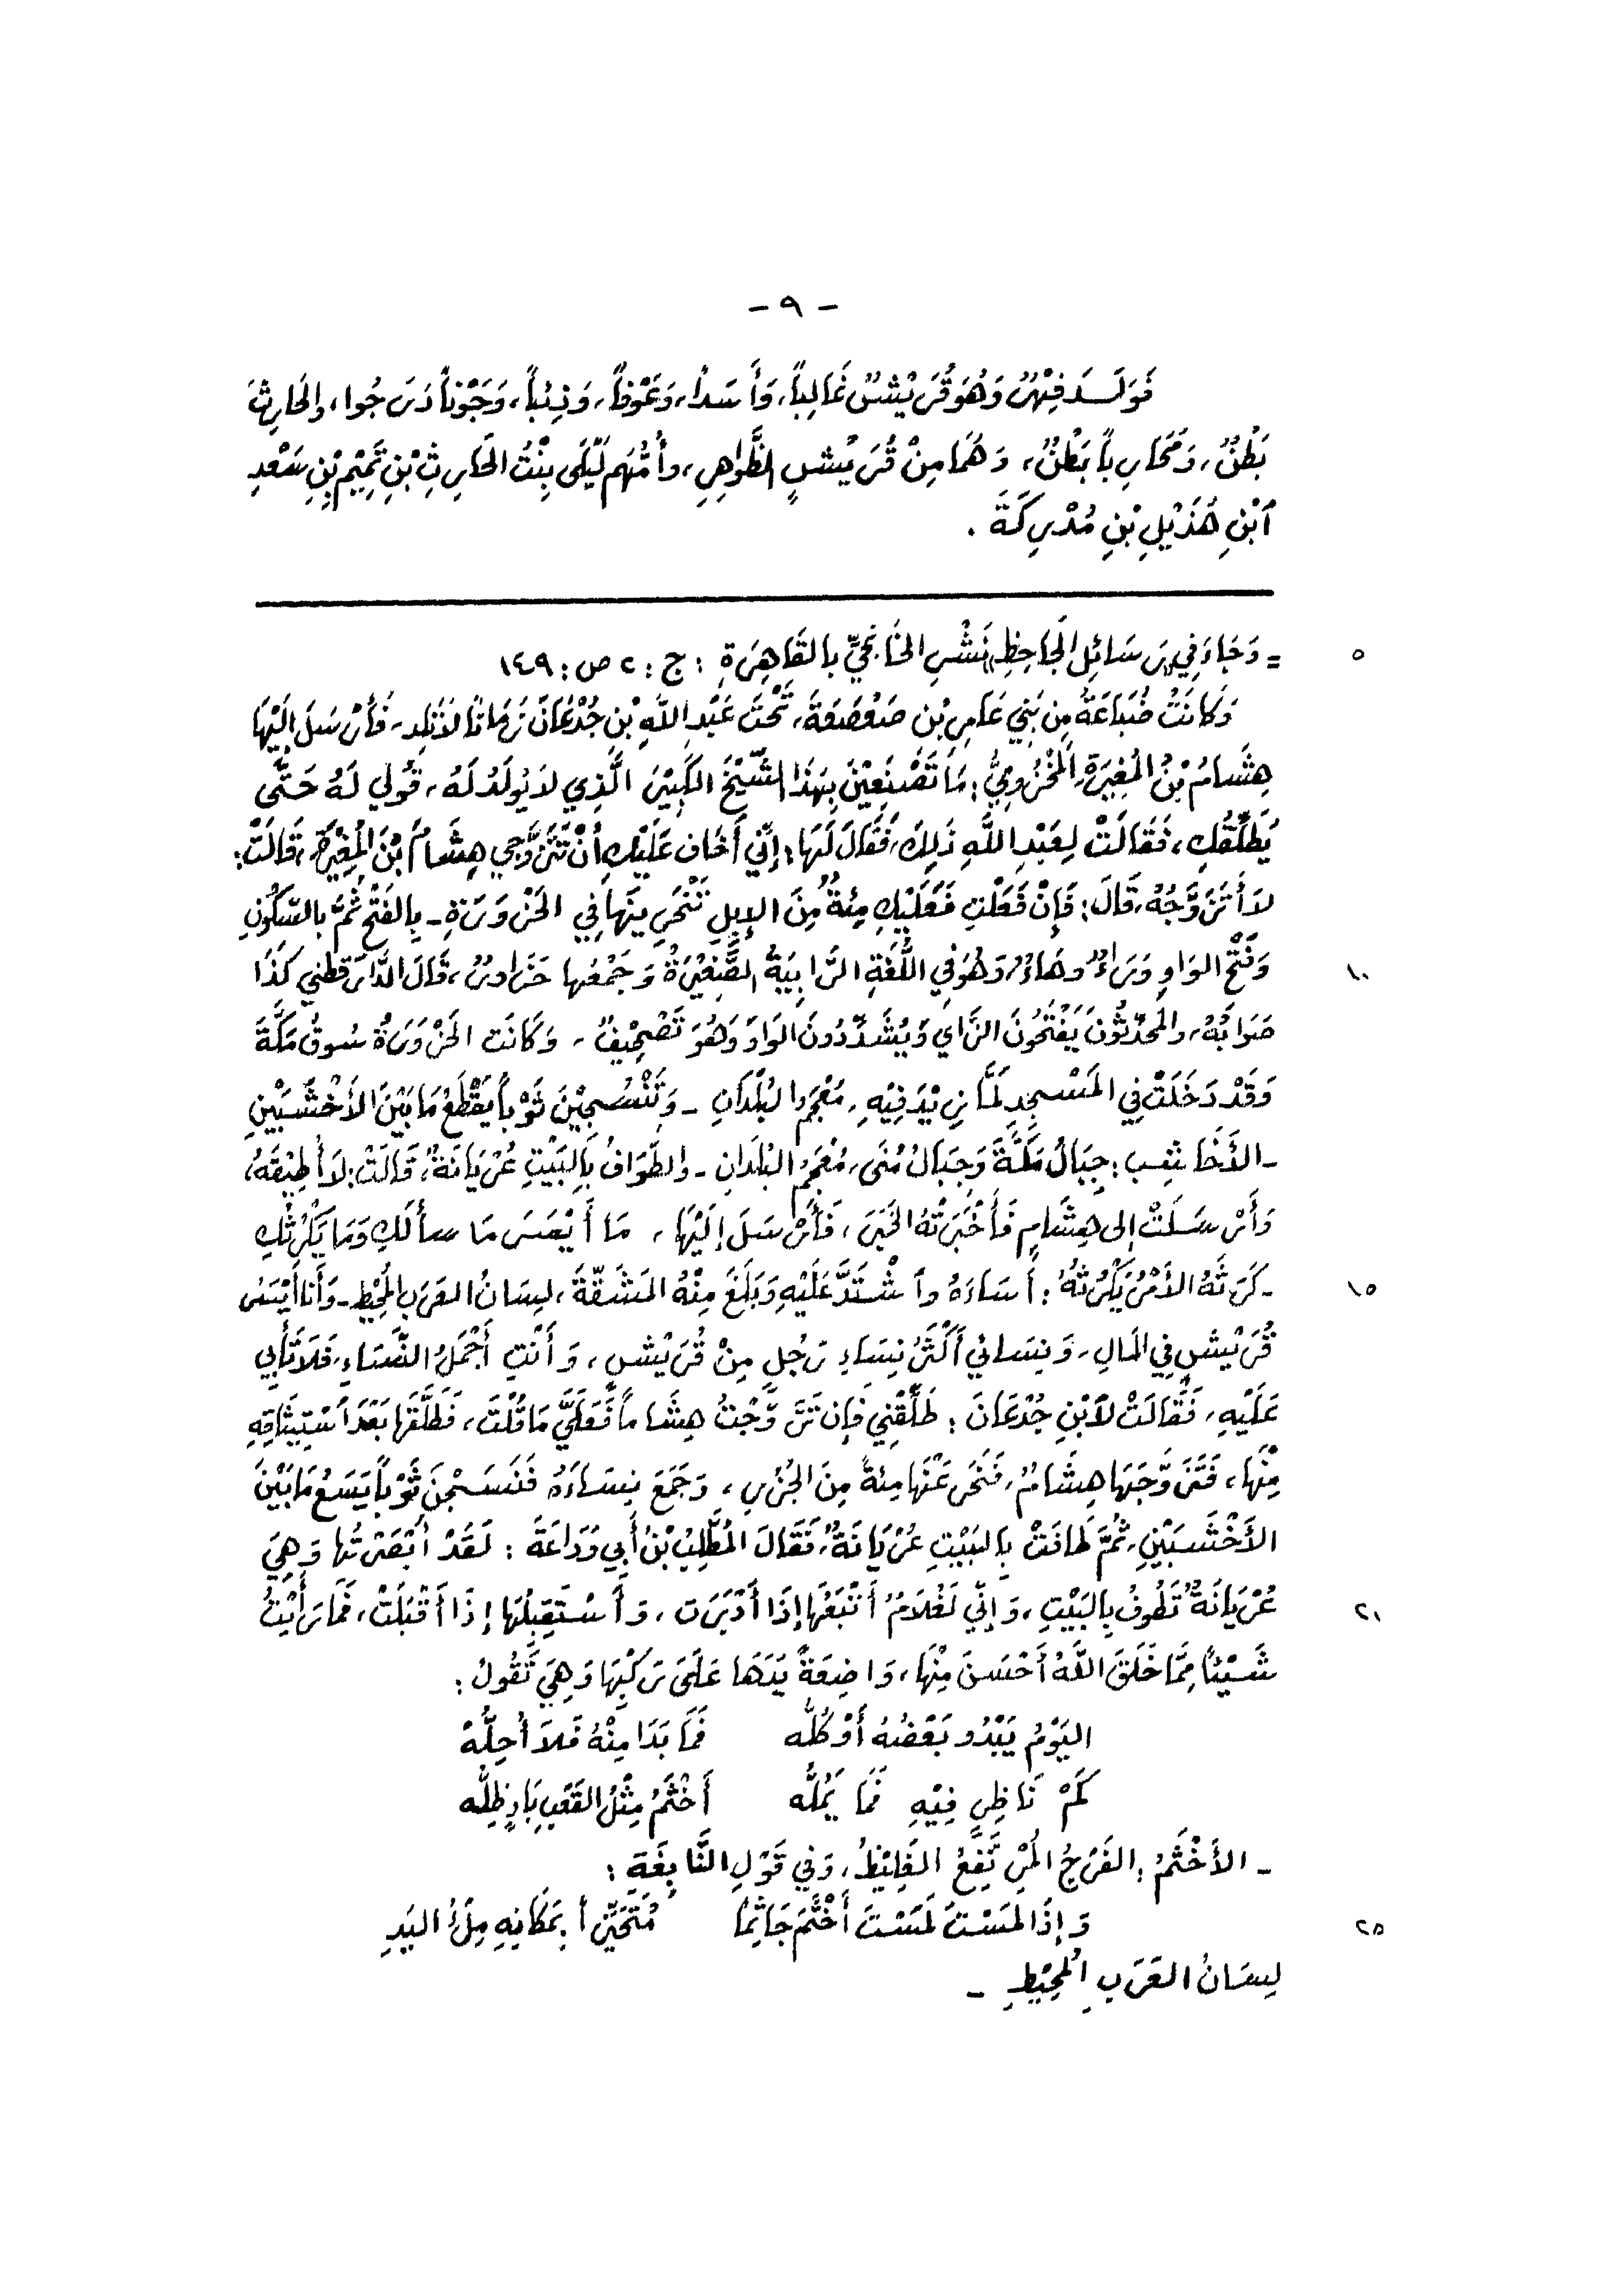 - ٩ -
فَوَلَدَ فِهْرٌ وَهُوَ قُرَيْشٌ غَالِباً، وَأَسَداً، وَعَوْفاً، وَذِئْباً، وَجَوْناً دَرَجُوا، والحَارِثَ
بَطْنٌ، وَمُحَارِباً بَطْنٌ، وَهُمَا مِنْ قُرَيْشٍ الظَّوَاهِرِ، وأُمُّهُم لَيْلَى بِنْتُ الحَارِثِ بْنِ تَمِيْمِ بْنِ سَعْدِ
ٱبْنِ هُذَيْلِ بْنِ مُدْرِكَةَ .
٥ = وَجَاءَ فِي «رَسَائِلِ الجَاحِظِ» نَشْرِ الخَانْجِيِّ بالقَاهِرَةِ : ج : ٢ ص : ١٤٩
وَكَانَتْ ضُبَاعَةُ مِن بَنِي عَامِرِ بْنِ صَعْصَعَةَ، تَحْتَ عَبْدِ اللَّهِ بْنِ جُدْعَانَ زَمَانَاً لاَ تَلِد، فَأَرْسَلَ إِلَيْهَا
هِشَامُ بْنُ المُغِيرَةِ المَخْزُومِيُّ : مَا تَصْنَعِيْنَ بِهَذَا الشَّيْخِ الكَبِيْرَ الَّذِي لاَ يُولَدُ لَهُ، قُولِي لَهُ حَتَّى
يُطَلِّقُكِ، فَقَالَتْ لِعَبْدِ اللَّهِ ذَلِكَ، فَقَالَ لَهَا : إِنِّي أَخَاف عَلَيْكِ أَنْ تَتَزَوَّجِي هِشَامَ بْنَ المُغِيْرَةِ، قَالَتْ :
لاَ أَتَزَوَّجُهُ، قَالَ : فَإِنْ فَعَلْتِ فَعَلَيْكِ مِئَةٌ مِنَ الإِبِلِ تَنْحَرِينَهَا فِي الحَزْوَرَةِ ـ بِالفَتْحِ ثُمَّ بالسُّكُونِ
١٠ وَفَتْحِ الوَاوِ وَرَاءٌ وهَاءٌ، وَهُوَ فِي اللُّغَةِ الرَّابِيَةُ الصَّغِيْرَةُ وَجَمْعُها حَزَاوِرُ، قَالَ الدَّارَقطني كَذَا
صَوَابُهُ، والمُحَدِّثُونَ يَفْتَحُونَ الزَّاي وَيُشَدِّدُونَ الوَاوَ وَهُوَ تَصْحِيْفٌ، وَكَانَت الحَزْوَرَةُ سُوقُ مَكَّةَ
وَقَدْ دَخَلَتْ فِي المَسْجِدِ لَمَّا زِيْدَ فِيْهِ، مُعْجَمُ البُلْدَانِ ـ وَتَنْسُجِيْنَ ثَوْباً يَقْطَعُ مَا بَيْنَ الأَخْشَبَيْنِ
ـ الأَخَاشِب : جِبَالُ مَكَّةَ وَجِبَالُ مُنَى، مُعْجَمُ البُلْدَانِ ـ والطَّوَافُ بِالبَيْتِ عُرْيَانَةً، قَالَتْ : لاَ أُطِيْقَهُ،
وَأَرْسَلَتْ إلى هِشَامٍ فَأَخْبَرَتْهُ الخَبَرَ، فَأَرْسَلَ إِلَيْهَا، مَا أَيْسَرَ مَا سألَكِ وَمَا يَكْرُثُكِ
١٥ ـ كَرَثَهُ الأَمْرُ يَكْرُثُهُ : أَسَاءَهُ وٱشْتَدَّ عَلَيْهِ وَبَلَغَ مِنْهُ المَشَقَّةَ، لِسَانُ العَرَبِ المُحِيْطِ ـ وَأَنا أَيْسَرُ
قُرَيْشٍ فِي المَالِ، وَنِسَائِي أَكْثَرُ نِسَاءِ رَجُلٍ مِنْ قُرَيْشٍ، وَأَنْتِ أَجْمَلُ النِّسَاءِ، فَلاَ تَأْبَي
عَلَيْهِ، فَقَالَتْ لاَبْنِ جُدْعَانَ : طَلِّقْنِي فَإِن تَزَوَّجْتُ هِشَاماً فَعَلَيَّ مَا قُلْتَ، فَطَلَّقَها بَعْدَ ٱسْتِيثَاقِهِ
مِنْهَا، فَتَزَوَّجَهَا هِشَامٌ، فَنَحَرَ عَنْهَا مِئَةً مِنَ الجُزُرِ، وَجَمَعَ نِسَاءَهُ فَنَسَجْنَ ثَوْباً يَسَعُ مَا بَيْنَ
الأَخْشَبَيْنِ، ثُمَّ طَافَتْ بِالبَيْتِ عُرْيَانَةً، فَقَالَ المُطَّلِبُ بْنُ أَبِي وَدَاعَةَ : لَقَدْ أَبْصَرْتُها وَهِيَ
٢١ عُرْيَانَةٌ تَطُوفُ بِالبَيْتِ، وَإِنِّي لَغُلاَمٌ أَتْبَعُهَا إِذَا أَدْبَرَت، وَأَسْتَقِبِلُهَا إِذَا أَقْبَلَتْ، فَمَا رَأَيْتُ
شَيْئاً مِمَّا خَلَقَ اللَّهُ أَحْسَنَ مِنْهَا، وَاضِعَةً يَدَهَا عَلَى رَكَبِهَا وَهِيَ تَقُولُ :
اليَوْمُ يَبْدُو بَعْضُهُ أَوْ كُلُّه فَمَا بَدَا مِنْهُ فَلاَ أُحِلُّهْ
كَمْ نَاظِرٍ فِيْهِ فَمَا يَمُلُّه أَخْثَمُ مِثْلُ القَعْبِ بَادٍ ظِلُّه
ـ الأَخْثَمُ : الفَرْجُ المُرْتَفِعُ الغَلِيْظُ، وَفِي قَوْلِ النَّابِغَةِ :
٢٥ وَإِذَا لَمَسْتَ لَمَسْتَ أَخْثَمَ جَاثِمَاً مُتَحَيِّزاً بِمَكَانِهِ مِلْءُ اليَدِ
لِسَانُ العَرَبِ المُحِيْطِ ـ